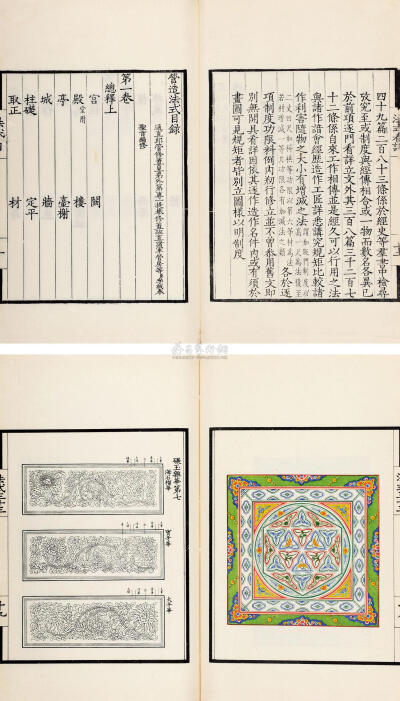 四十九篇二百八十三條係於經史等羣書中檢尋
攷究至或制度與經傳相合或一物而數名各異已
於前項逐門看詳立文外其三百八篇三千二百七
十二條係自來工作相傳並是經久可以行用之法
與諸作諳會經歷造作工匠詳悉講究規矩比較諸
作利害隨物之大小有增減之法謂如版門制度以高一尺為法積至
二丈四尺如枓栱等功限以第六等材為法若材增減一等其功限各有加減之法之類各於逐
項制度功限料例内剏行修立並不曾參用舊文即
別無開具看詳因依其逐作造作名件内或有須於
畫圖可見規矩者皆別立圖樣以明制度
營造法式目錄
通直郎管修蓋皇弟外第專一提舉修蓋班直諸軍營房等臣李誡奉
聖旨編修
第一卷
總釋上
宮 闕
殿堂附 樓
亭 臺榭
城 牆
柱礎 定平
取正 材
碾玉雜華第七
海石榴華
寶牙華
太平華